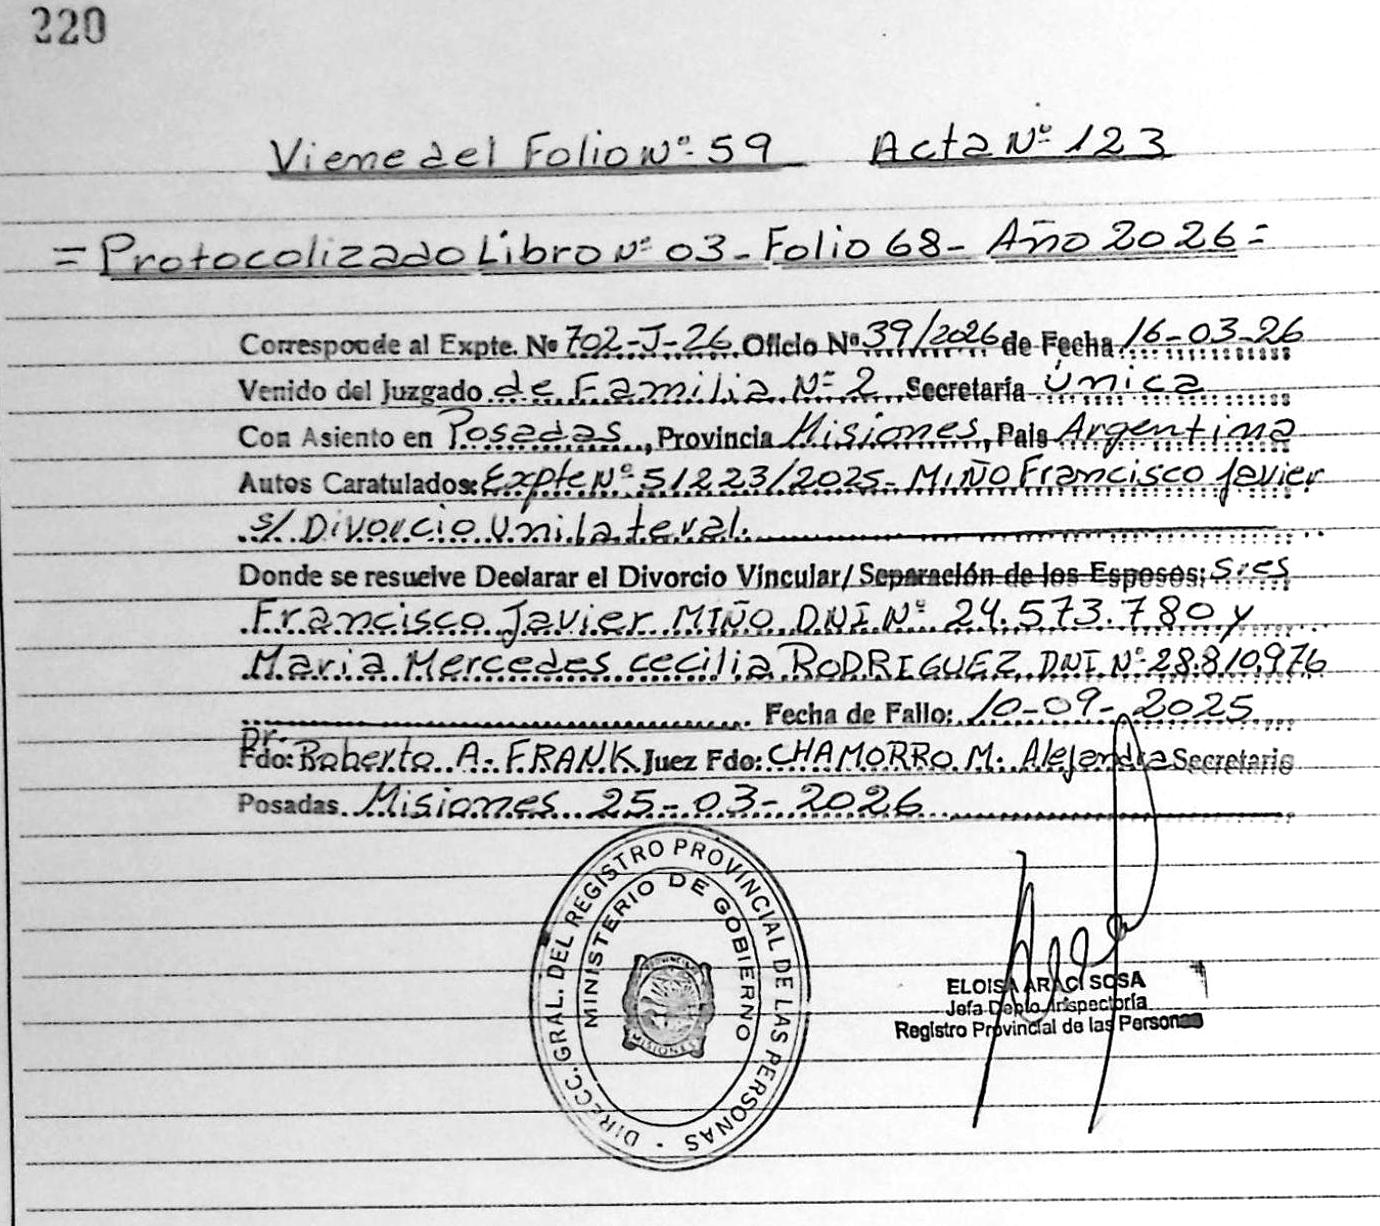 220
Viene del Folio Nº 59 Acta Nº 123
= Protocolizado Libro Nº 03 - Folio 68 - Año 2026 =
Corresponde al Expte. Nº 702-J-26 Oficio Nº 39/2026 de Fecha 16-03-26
Venido del Juzgado de Familia Nº 2 Secretaría Única
Con Asiento en Posadas, Provincia Misiones, País Argentina
Autos Caratulados: Expte Nº 51223/2025- MIÑO Francisco Javier
s/ Divorcio Unilateral.
Donde se resuelve Declarar el Divorcio Vincular/ Separación de los Esposos: S.es
Francisco Javier MIÑO DNI Nº 24.573.780 y
Maria Mercedes cecilia RODRIGUEZ DNI Nº 28.810.976
Fecha de Fallo: 10-09-2025
Dr.
Fdo: Roberto A. FRANK Juez Fdo: CHAMORRO M. Alejandra Secretario
Posadas Misiones 25-03-2026
DIRECC. GRAL. DEL REGISTRO PROVINCIAL DE LAS PERSONAS
MINISTERIO DE GOBIERNO
MISIONES
ELOISA ARACI SOSA
Jefa Depto. Inspectoría
Registro Provincial de las Personas